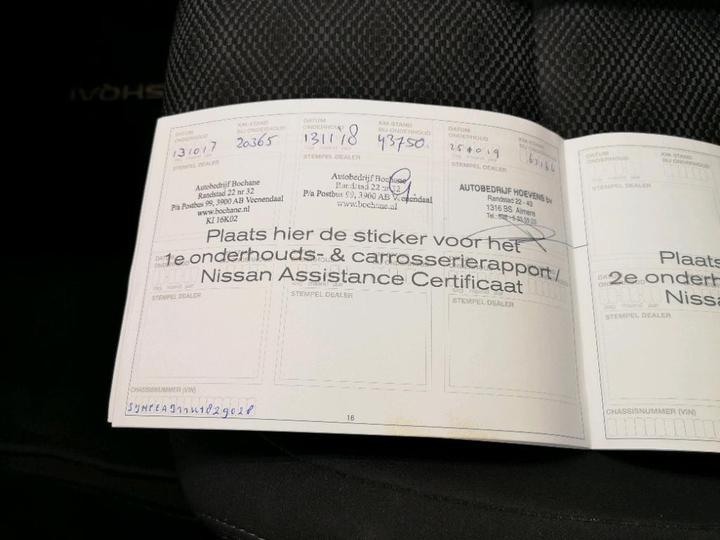 DATUM ONDERHOUD
KM-STAND BIJ ONDERHOUD
131017
20365
STEMPEL DEALER
Autobedrijf Bochane
Randstad 22 nr 32
P/a Postbus 99, 3900 AB Veenendaal
www.bochane.nl
KI 16K02
DATUM ONDERHOUD
KM-STAND BIJ ONDERHOUD
131118
43750
STEMPEL DEALER
Autobedrijf Bochane
Randstad 22 nr 32
P/a Postbus 99, 3900 AB Veenendaal
www.bochane.nl
DATUM ONDERHOUD
KM-STAND BIJ ONDERHOUD
STEMPEL DEALER
AUTOBEDRIJF HOEVENS bv
Randstad 22 - 43
1316 BS Almere
Plaats hier de sticker voor het
1e onderhouds- & carrosserierapport /
Nissan Assistance Certificaat
STEMPEL DEALER
STEMPEL DEALER
STEMPEL DEALER
CHASSISNUMMER (VIN)
16
DATUM ONDERHOUD
STEMPEL DEALER
Plaats
2e onderh
Nissa
STEMPEL DEALER
CHASSISNUMMER (VIN)